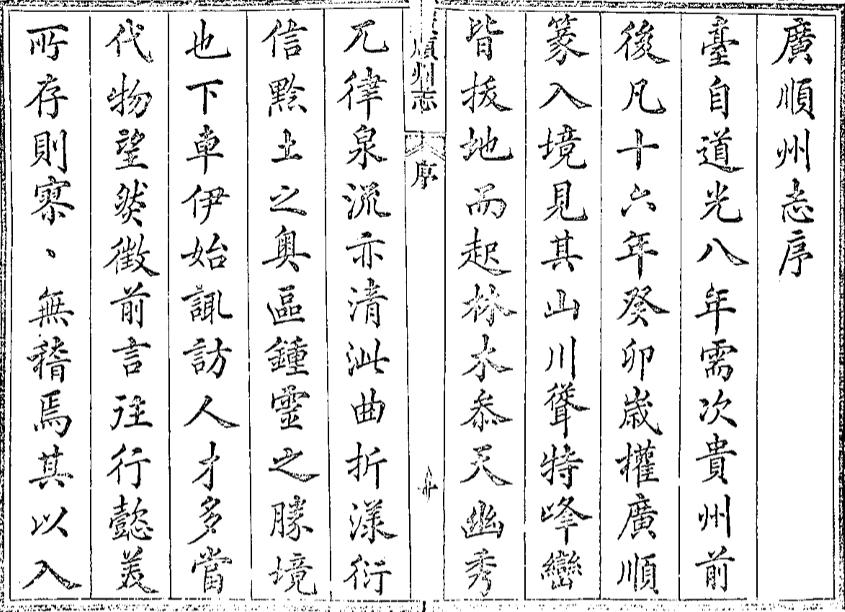 廣順州志序
臺自道光八年需次貴州前
後凡十六年癸卯歲權廣順
篆入境見其山川聳特峰巒
皆拔地而起林木叅天幽秀
廣順州志
序
兀硉泉流亦清泚曲折漾衍
信黔土之奧區鍾靈之勝境
也下車伊始諏訪人才多當
代物望然徵前言往行懿美
所存則寥、無稽焉其以入